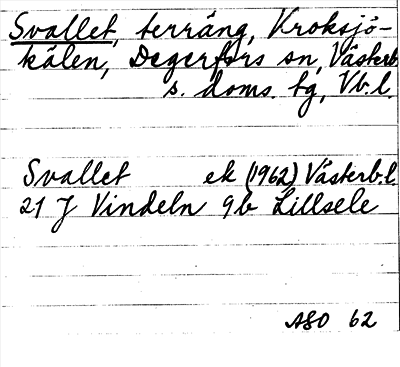 Svallet, terräng, Kroksjö-
kälen, Degerfors sn, Västerb.
s. doms. tg, Vb.l.
Svallet ek (1962) Västerb.l.
21 J Vindeln 9b Lillsele
ASO 62